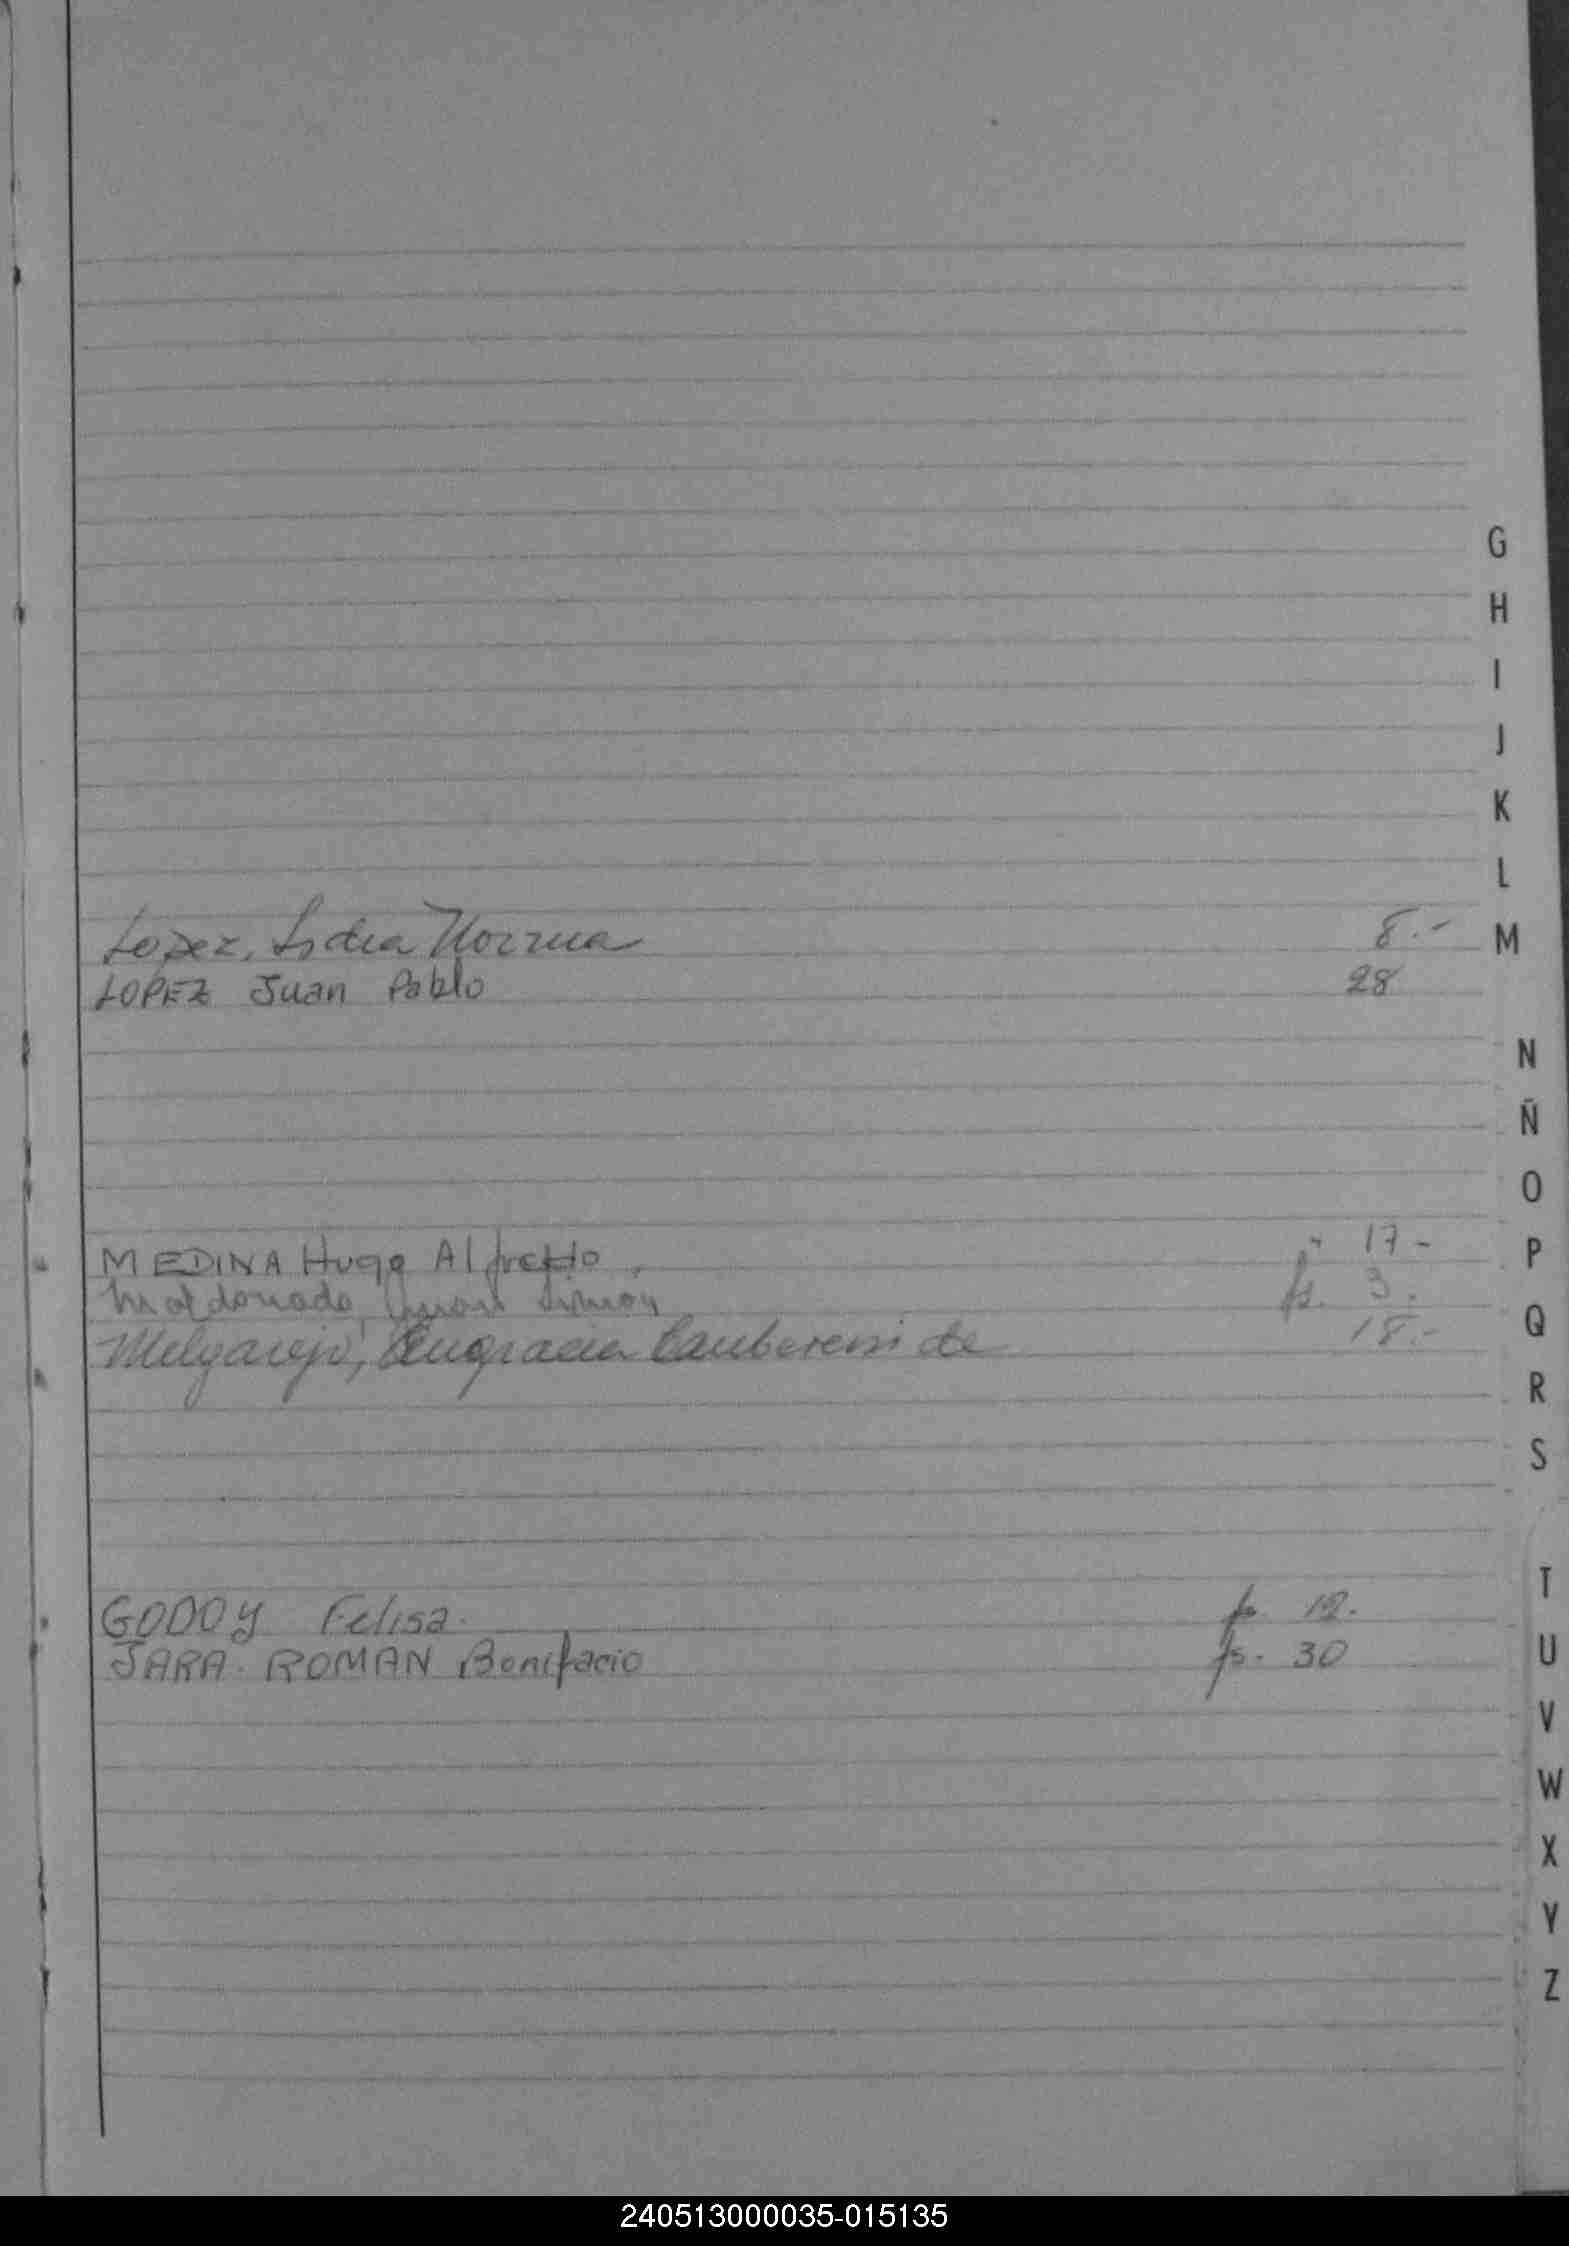 G
H
I
J
K
L
Lopez, Lidia Norma 8.- M
LOPEZ Juan Pablo 28
N
Ñ
O
MEDINA Hugo Alfredo " 17 - P
Maldonado, Juan Simón fs. 3.
Melgarejo, Engracia de 18.- Q
R
S
T
GODOY Felisa. fs 12.
JARA ROMAN Bonifacio fs. 30 U
V
W
X
Y
Z
240513000035-015135